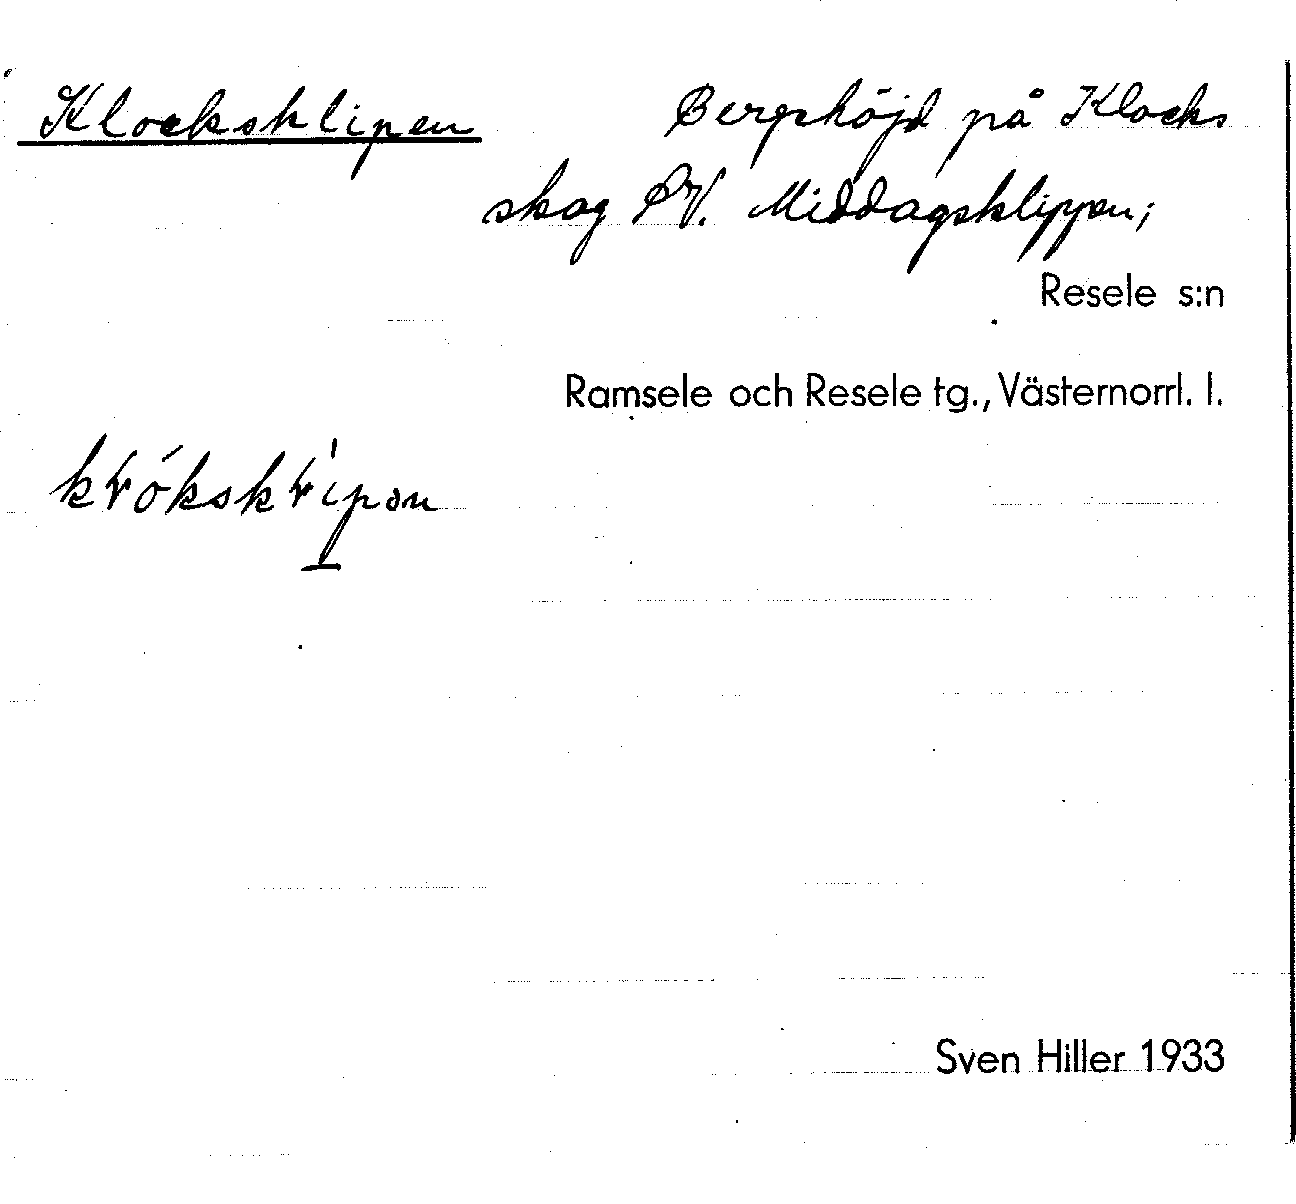 Klocksklipen Bergshöjd på Klocks
skog SV. Middagsklippen;
Resele s:n
Ramsele och Resele tg., Västernorrl. l.
Sven Hiller 1933